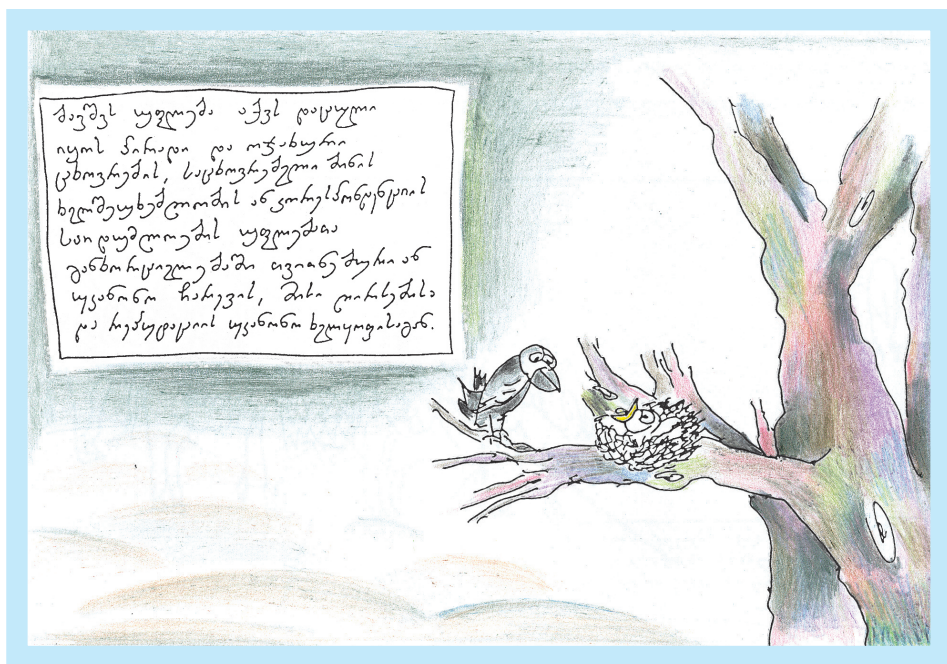 ბავშვს უფლება აქვს დაცული
იყოს პირადი და ოჯახური
ცხოვრების, საცხოვრებელი ბინის
ხელშეუხებლობის ან კორესპონდენციის
საიდუმლოების უფლებათა
განხორციელებაში თვითნებური ან
უკანონო ჩარევის, მისი ღირსებისა
და რეპუტაციის უკანონო ხელყოფისაგან.